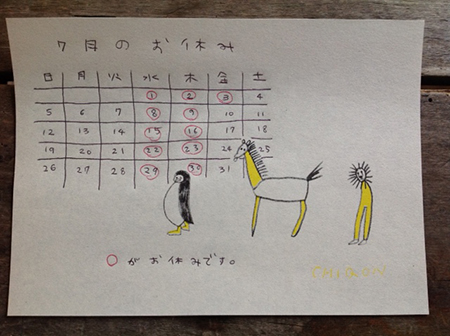 7月のお休み
日 月 火 水 木 金 土
1 2 3 4
5 6 7 8 9 10 11
12 13 14 15 16 17 18
19 20 21 22 23 24 25
26 27 28 29 30 31
○がお休みです。